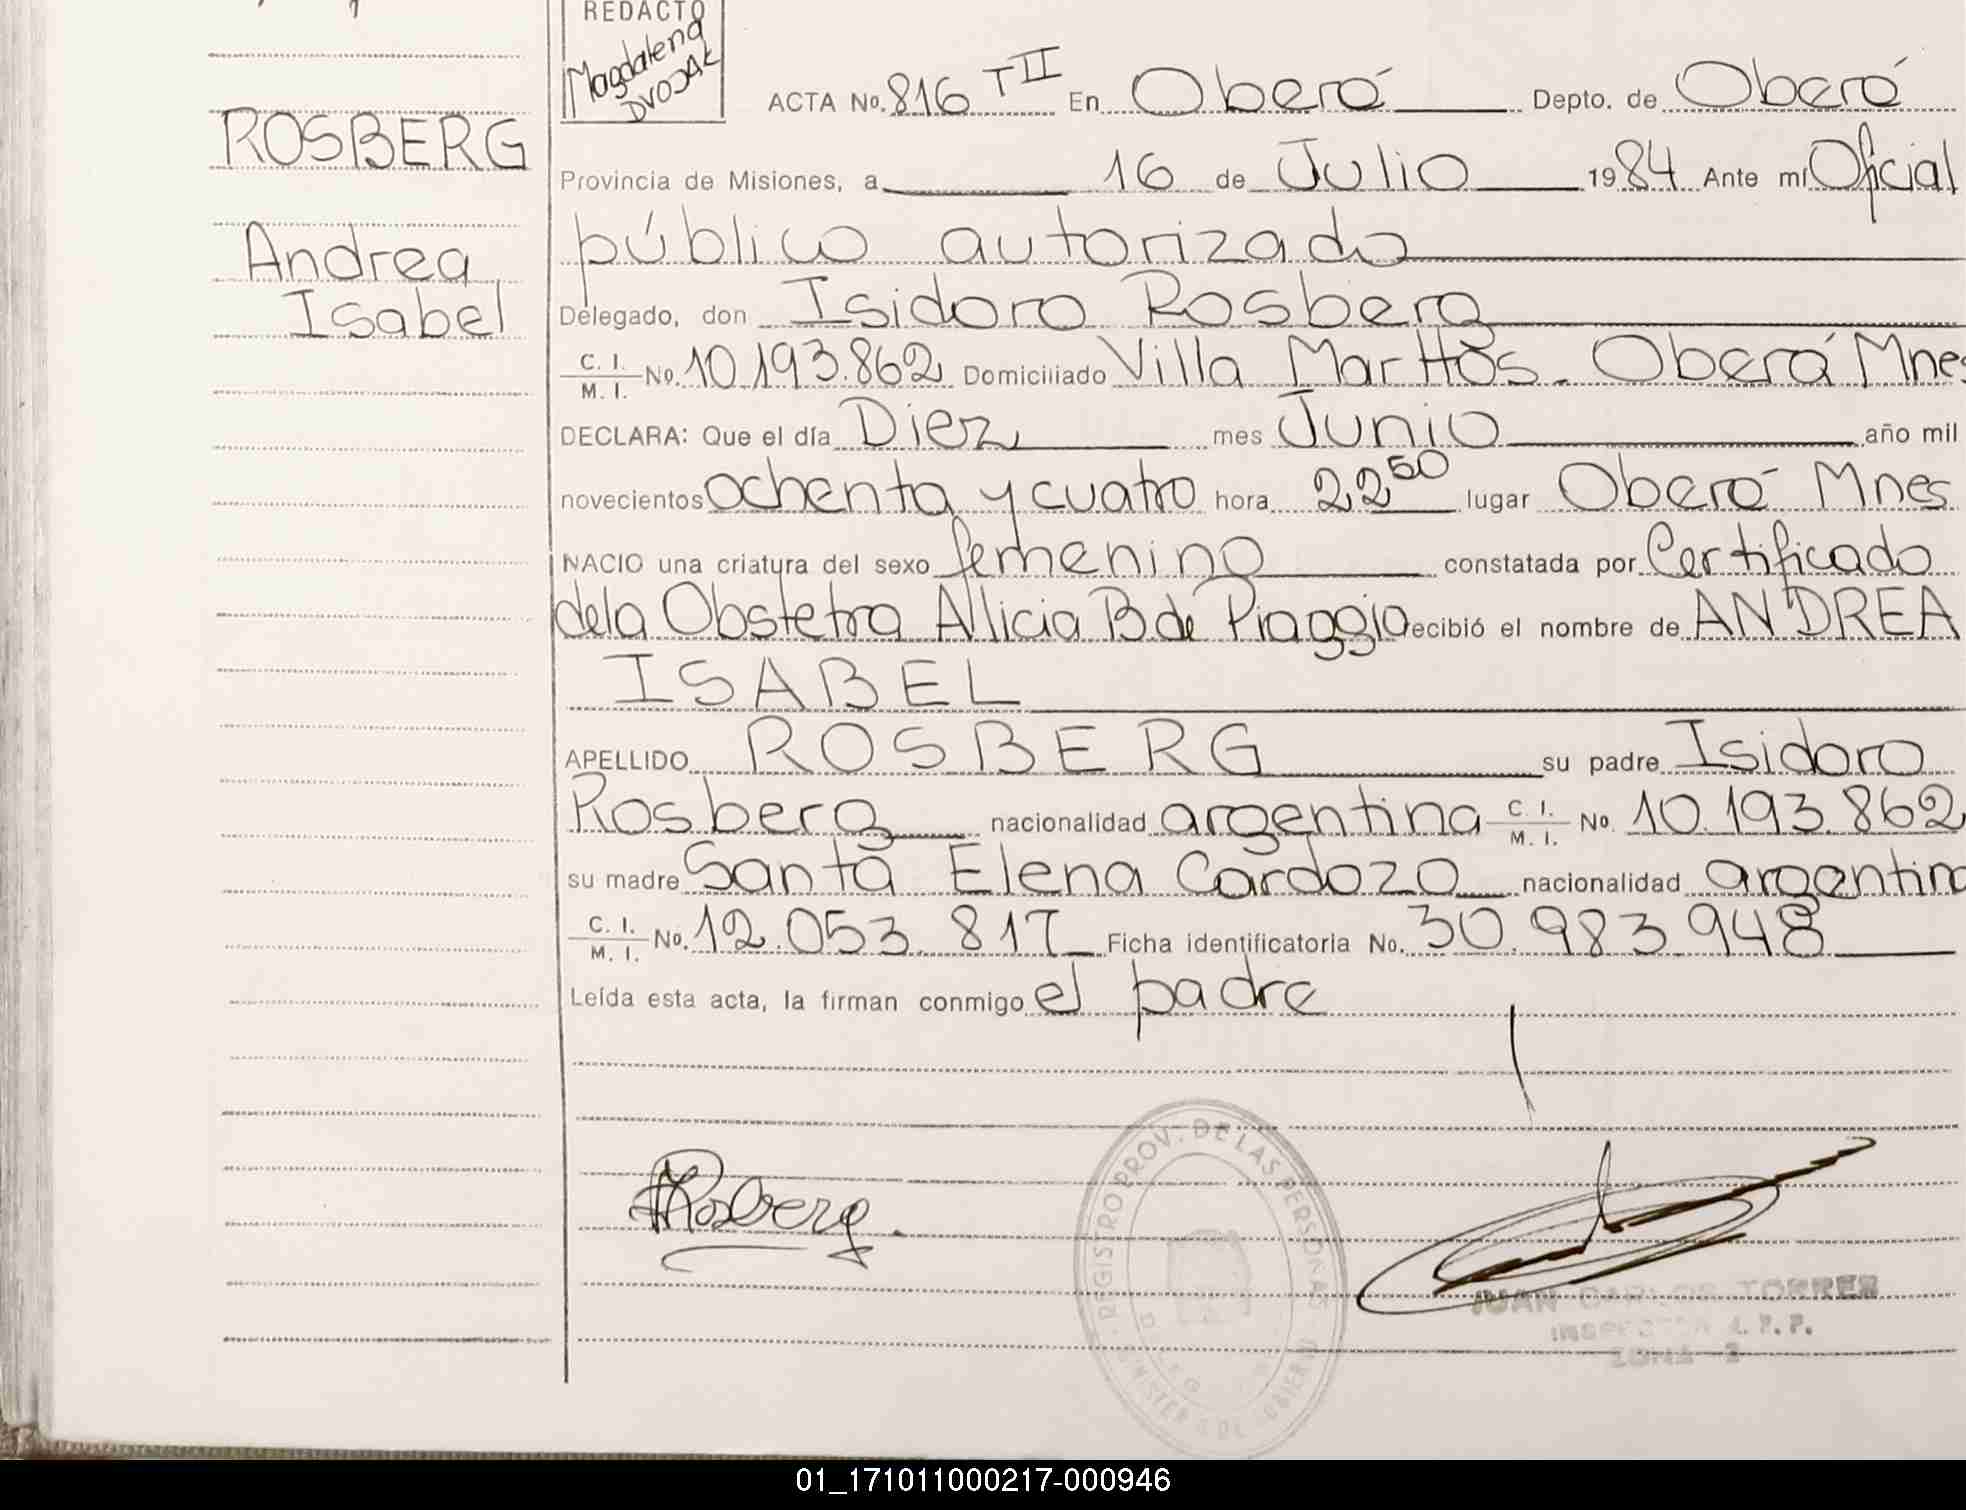 REDACTO
Magdalena
DVOJAK
ACTA No. 816 T II En Oberá Depto. de Oberá
ROSBERG
Provincia de Misiones, a 16 de Julio 1984 Ante mí Oficial
Andrea
público autorizado
Isabel
Delegado, don Isidoro Rosberg
C. I. / M. I. No. 10.193.862 Domiciliado Villa Martos. Oberá Mnes
DECLARA: Que el día Diez mes Junio año mil
novecientos ochenta y cuatro hora 22 50 lugar Oberá Mnes
NACIO una criatura del sexo femenino constatada por Certificado
dela Obstetra Allicia B de Piaggio recibió el nombre de ANDREA
ISABEL
APELLIDO ROSBERG su padre Isidoro
Rosberg nacionalidad argentina C. I. / M. I. No. 10.193.862
su madre Santa Elena Cardozo nacionalidad argentina
C. I. / M. I. No. 12.053.817 Ficha identificatoria No. 30.983.948
Leída esta acta, la firman conmigo el padre
Rosberg.
REGISTRO PROV. DE LAS PERSONAS
JUAN CARLOS TORRES
INSPECTOR
ZONA 2
01_171011000217-000946